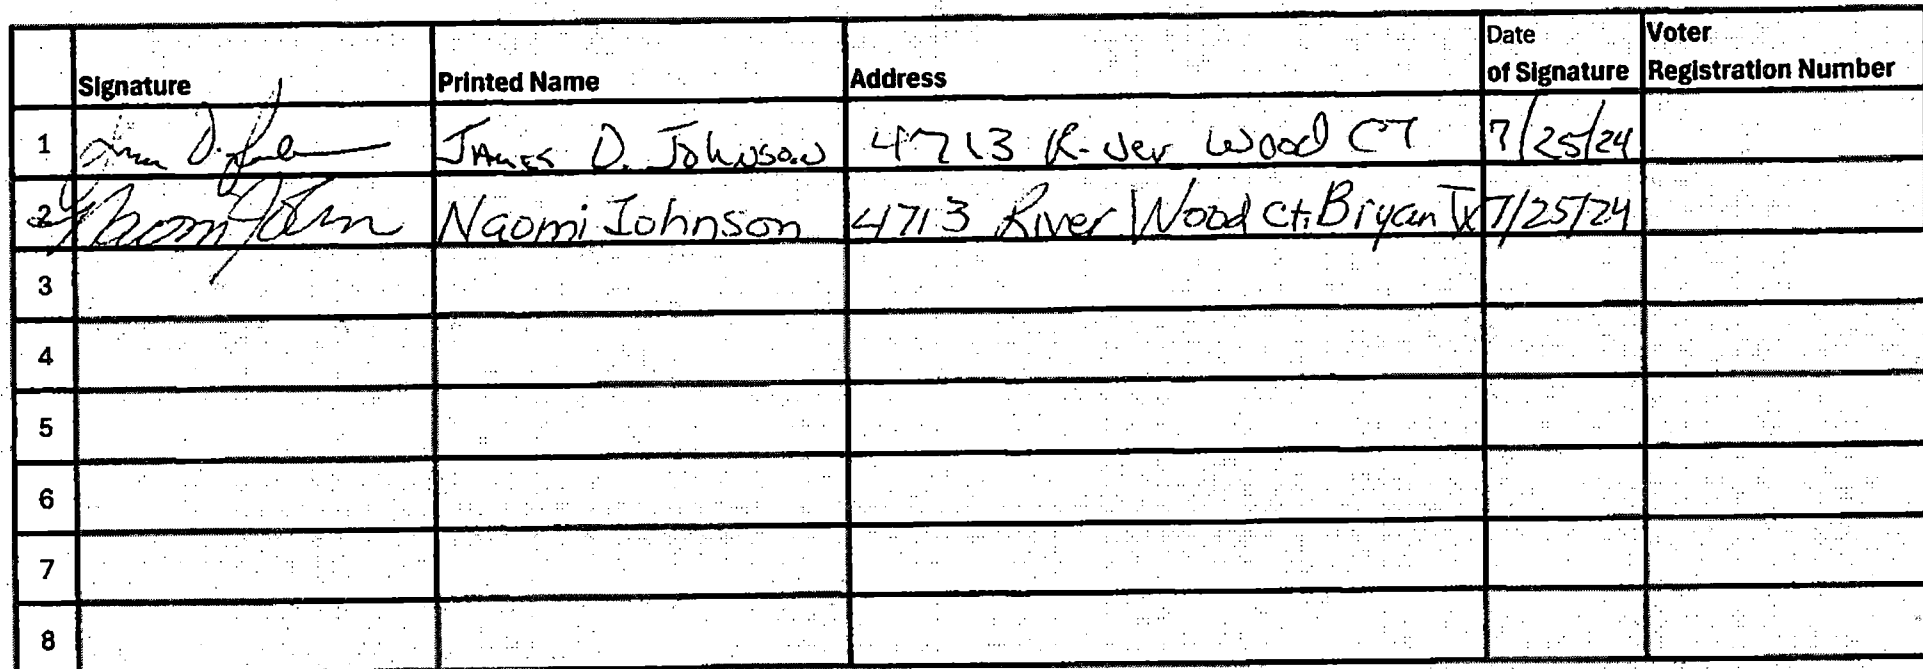 Signature Printed Name Address Date of Signature Voter Registration Number
1 James D. Johnson 4713 River Wood CT 7/25/24
2 Naomi John Naomi Johnson 4713 River Wood Ct. Bryan Tx 7/25/24
3
4
5
6
7
8